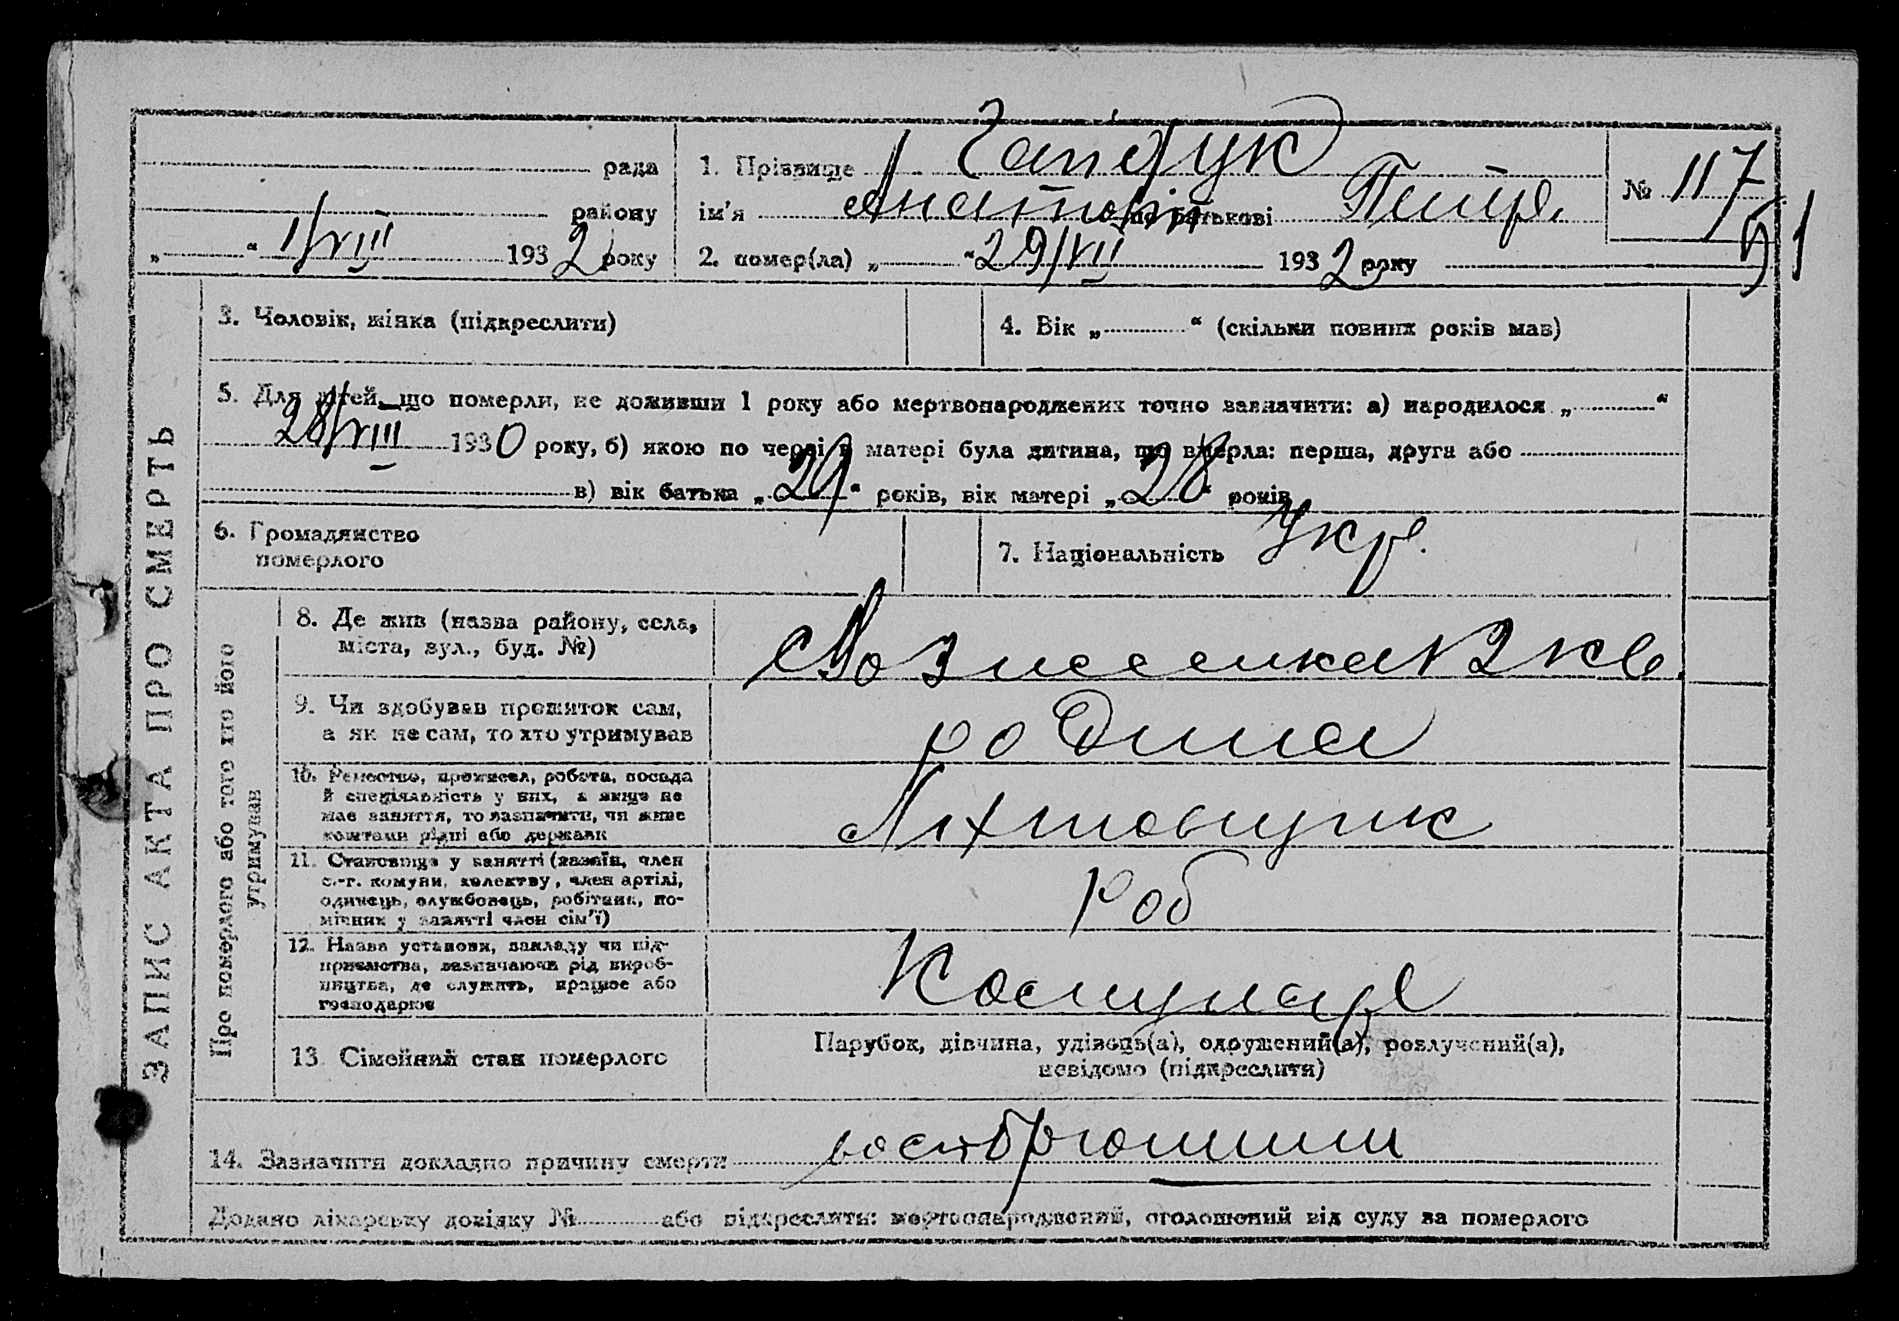 ЗАПИС АКТА ПРО СМЕРТЬ
рада
району
„ “ 1/VIII 1932 року
1. Прізвище Гайдук
ім'я Анатолій по батькові Петр.
2. помер(ла) „ “ 29/VII 1932 року
№ 117
51
3. Чоловік, жінка (підкреслити)
4. Вік „ “ (скільки повних років мав)
5. Для дітей, що померли, не доживши 1 року або мертвонароджених точно зазначити: а) народилося „ “
28/VIII 1930 року, б) якою по черзі в матері була дитина, що вмерла: перша, друга або
в) вік батька „29“ років, вік матері „28“ років
6. Громадянство
померлого
7. Національність Укр.
Про померлого або того хто його
утримував
8. Де жив (назва району, села,
міста, вул., буд. №)
Вознесенка 12 кв
9. Чи здобував прожиток сам,
а як не сам, то хто утримував
родина
10. Ремество, промисел, робота, посада
й спеціяльність у них, а якщо не
має заняття, то зазначити, чи живе
коштами рідні або держави
11. Становище у занятті (хазяїн, член
с.-г. комуни, колектву, член артілі,
одинець, службовець, робітник, по-
мічник у занятті член сім'ї)
Роб
12. Назва установи, закладу чи під-
приємства, зазначаючи рід вироб-
ництва, де служить, працює або
господарює
13. Сімейний стан померлого
Парубок, дівчина, удівець(а), одружений(а), розлучений(а),
невідомо (підкреслити)
14. Зазначити докладно причину смерти
Додано лікарську довідку № або підкреслить: мертвонароджений, оголошений від суду за померлого